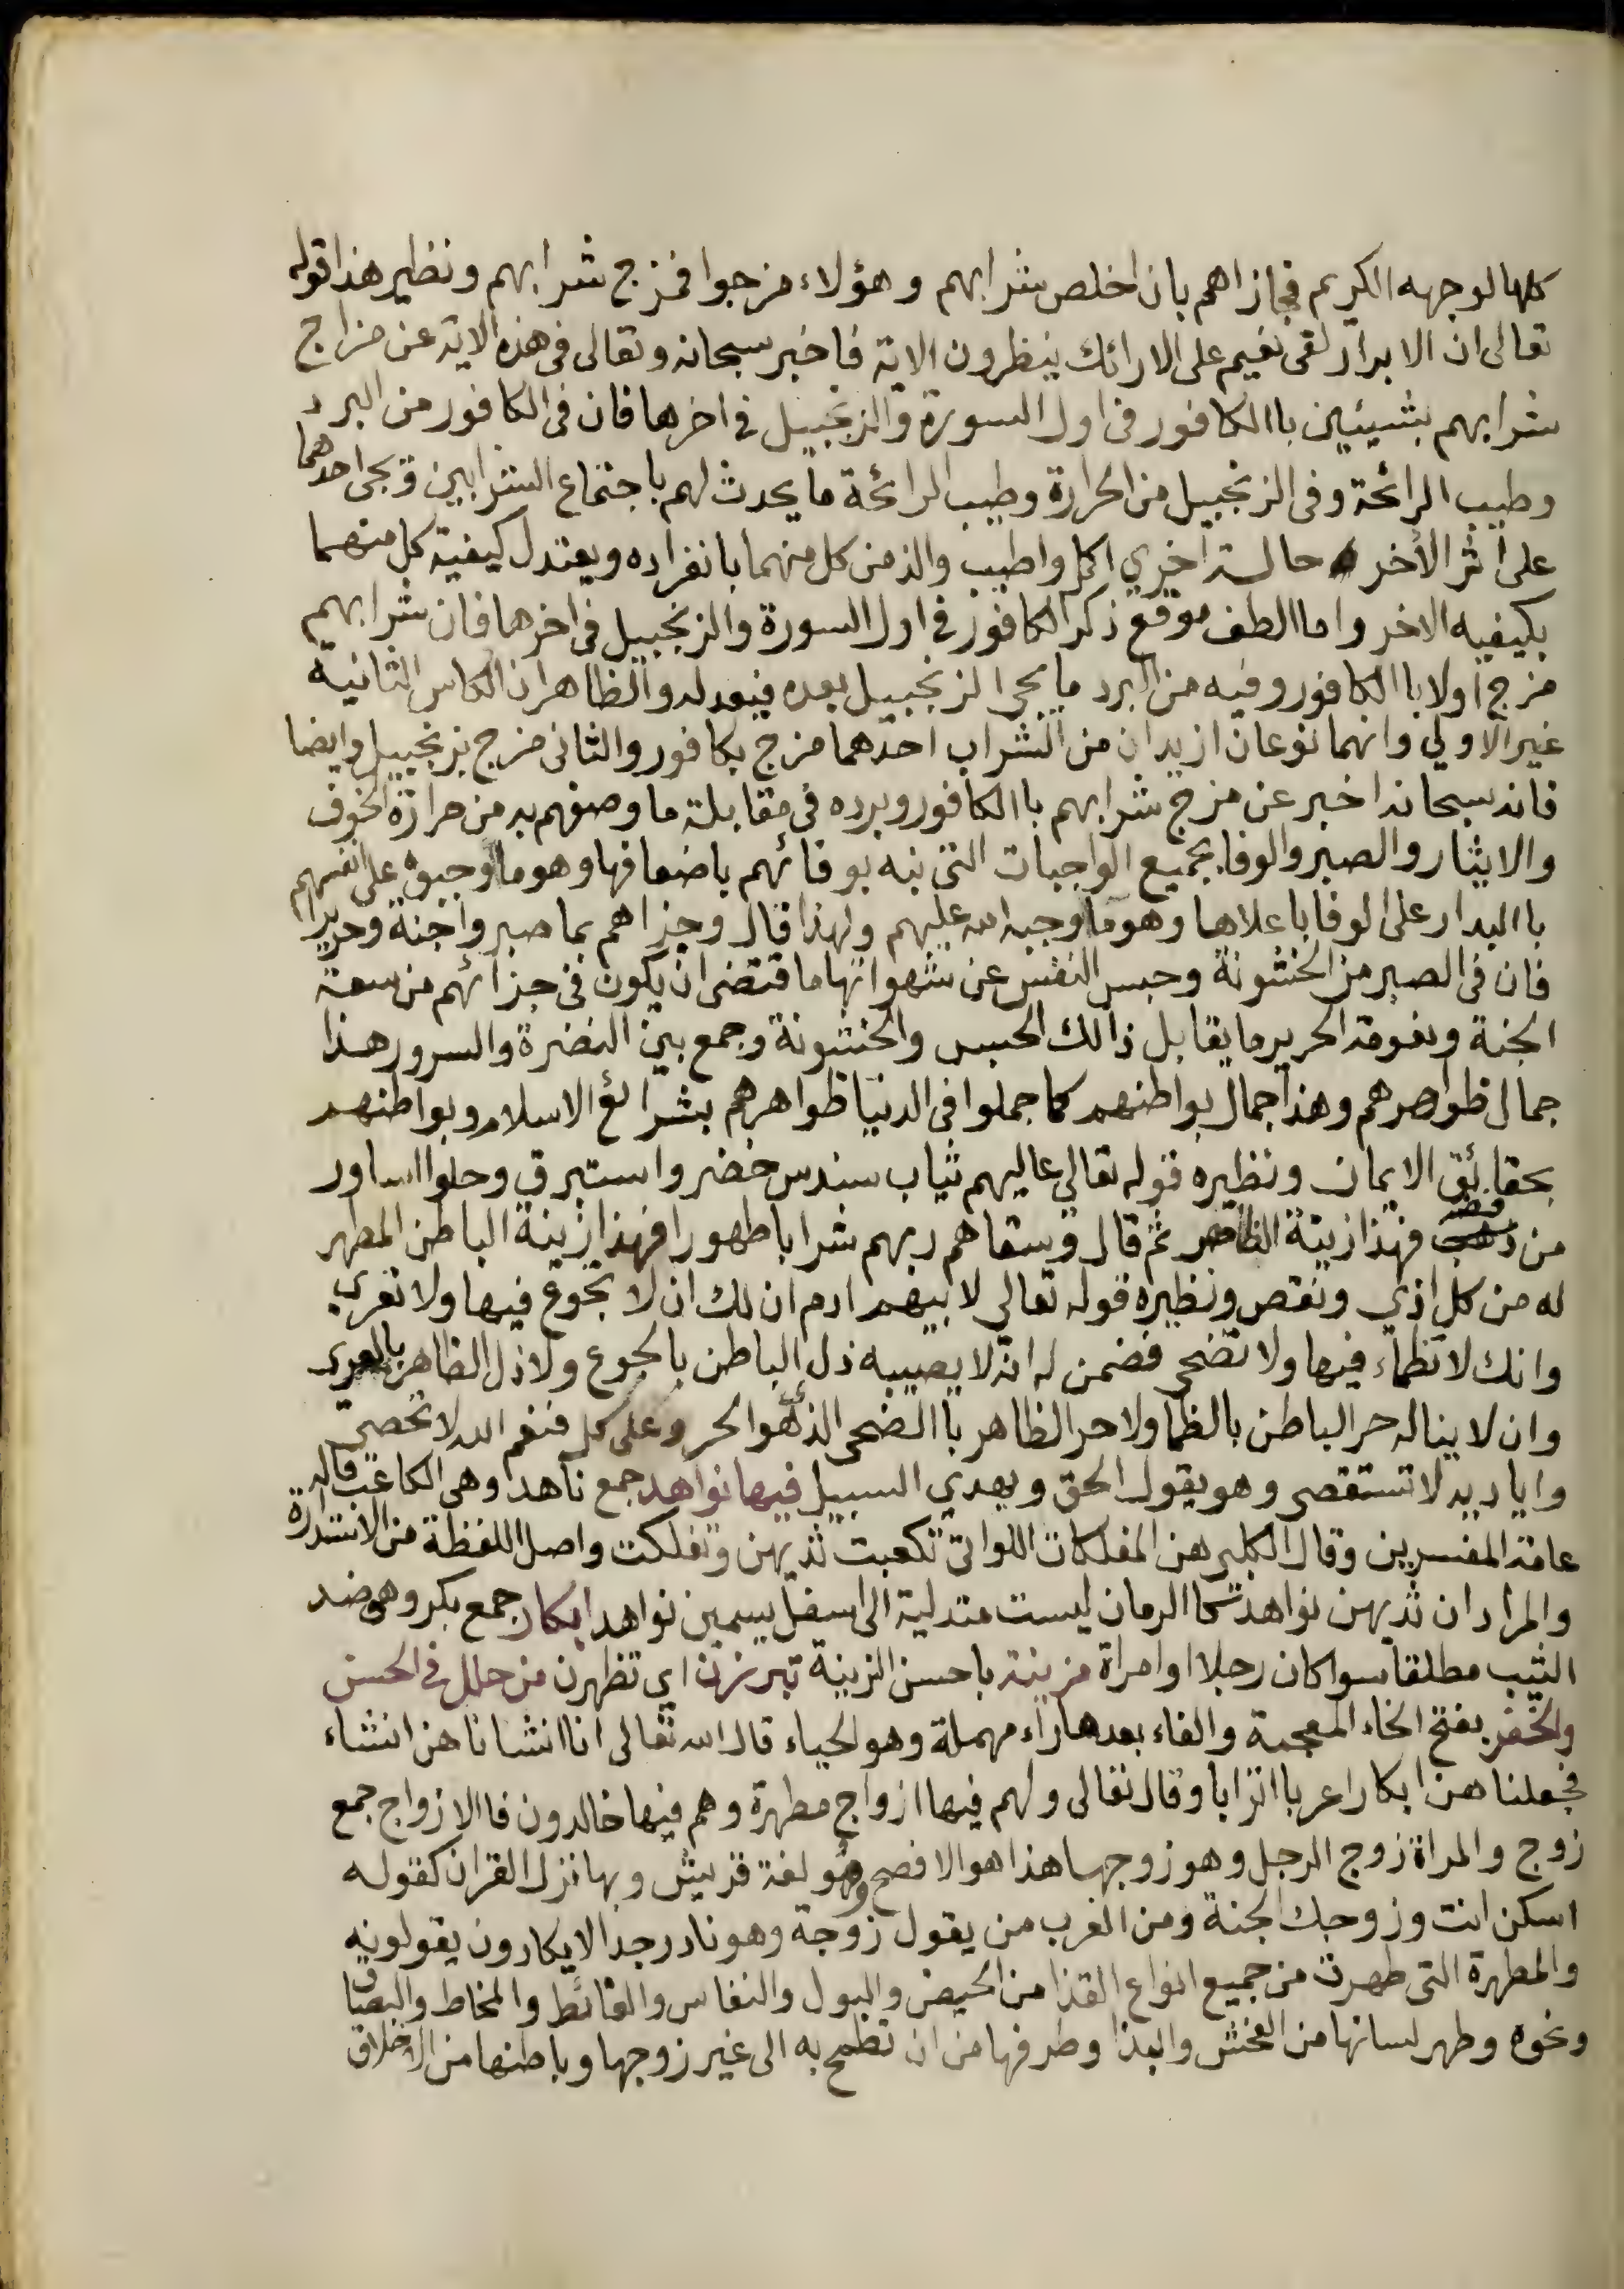 كلها لوجهه الكريم فجازاهم بان اخلص شرابهم وهؤلاء مزجوا فمزج شرابهم ونظير هذا قوله
تعالى ان الابرار لفى نعيم على الارائك ينظرون الاية فاخبر سبحانه وتعالى فى هذه الاية عن مزاج
شرابهم بشيئين باالكافور فى اول السورة والزنجبيل فى اخرها فان فى الكافور من البرد
وطيب الرائحة وفى الزنجبيل من الحرارة وطيب الرائحة ما يحدث لهم باجتماع الشرابين وبجى احدهما
على اثر الأخر حالة اخري اكل واطيب والذ من كل منهما بانفراده ويعتدل كيفية كل منهما
بكيفيه الاخر واما الطف موقع ذكر الكافور فى اول السورة والزنجبيل فى اخرها فان شرابهم
مزج اولا باالكافور وفيه من البرد ما يجى الزنجبيل بعده فيعدله والظاهر ان الكاس الثانية
غير الاولي وانهما نوعان ازيدان من الشراب احدهما مزج بكافور والثانى مزج بزنجبيل وايضا
فانه سبحانه اخبر عن مزج شرابهم باالكافور وبرده فى مقابلة ما وصفهم به من حرارة الخوف
والايثار والصبر والوفا بجميع الواجبات التى نبه بوفائهم باضعافها وهو ما اوجبوه على انفسهم
باالبدار على الوفا باعلاها وهو ما اوجبه الله عليهم ولهذا قال وجزاهم بما صبروا جنة وحريرا
فان فى الصبر من الخشونة وحبس النفس عن شهواتها ما اقتضى ان يكون فى جزائهم من سعة
الجنة ونعومة الحرير ما يقابل ذالك الحبس والخشونة وجمع بين النضرة والسرور هذا
جمال ظواهرهم وهذا جمال بواطنهم كما جملوا فى الدنيا ظواهرهم بشرائع الاسلام وبواطنهم
بحقائق الايمان ونظيره قوله تعالي عاليهم ثياب سندس خضر واستبرق وحلوا اساور
من فضة فهذا زينة الظاهر ثم قال وسقاهم ربهم شرابا طهورا فهذا زينة الباطن المطهر
له من كل اذي ونقص ونظيره قوله تعالي لابيهم ادم ان لك ان لا تجوع فيها ولا تعري
وانك لا تظماء فيها ولا تضحى فضمن له انه لا يصيبه ذل الباطن بالجوع ولا ذل الظاهر بالعرى
وان لا يناله حر الباطن بالظما ولا حر الظاهر باالضحى الذي هو الحر وعلى كل فنعم الله لا تحصى
واياديه لا تستقصى وهو يقول الحق ويهدي السبيل فيها نواهد جمع ناهد وهى الكاعب قاله
عامة المفسرين وقال الكلبى هن المفلكات اللواتى تكعبت ثديهن وتفلكت واصل اللفظة من الاستدارة
والمراد ان ثديهن نواهد كما الرمان ليست متدلية الى اسفل يسمين نواهد ابكار جمع بكر وهو ضد
الثيب مطلقا سوا كان رجلا او امراة مزينة باحسن الزينة تبرزن اي تظهرن من حلل فى الحسن
والخفر بفتح الخاء المعجمة والفاء بعدها راء مهملة وهو الحياء قال الله تعالى انا انشاناهن انشاء
فجعلناهن ابكارا عربا اترابا وقال تعالى ولهم فيها ازواج مطهرة وهم فيها خالدون فاالازواج جمع
زوج والمراة زوج الرجل وهو زوجها هذا هو الافصح وهو لغة قريش وبها نزل القران كقوله
اسكن انت وزوجك الجنة ومن العرب من يقول زوجة وهو نادر جدا لا يكادون يقولونه
والمطهرة التى طهرت من جميع انواع القذا من الحيض والبول والنفاس والغائط والمخاط والبصاق
ونحوه وطهر لسانها من الفحش والبذا وطرفها من ان تطمح به الى غير زوجها وباطنها من الاخلاق